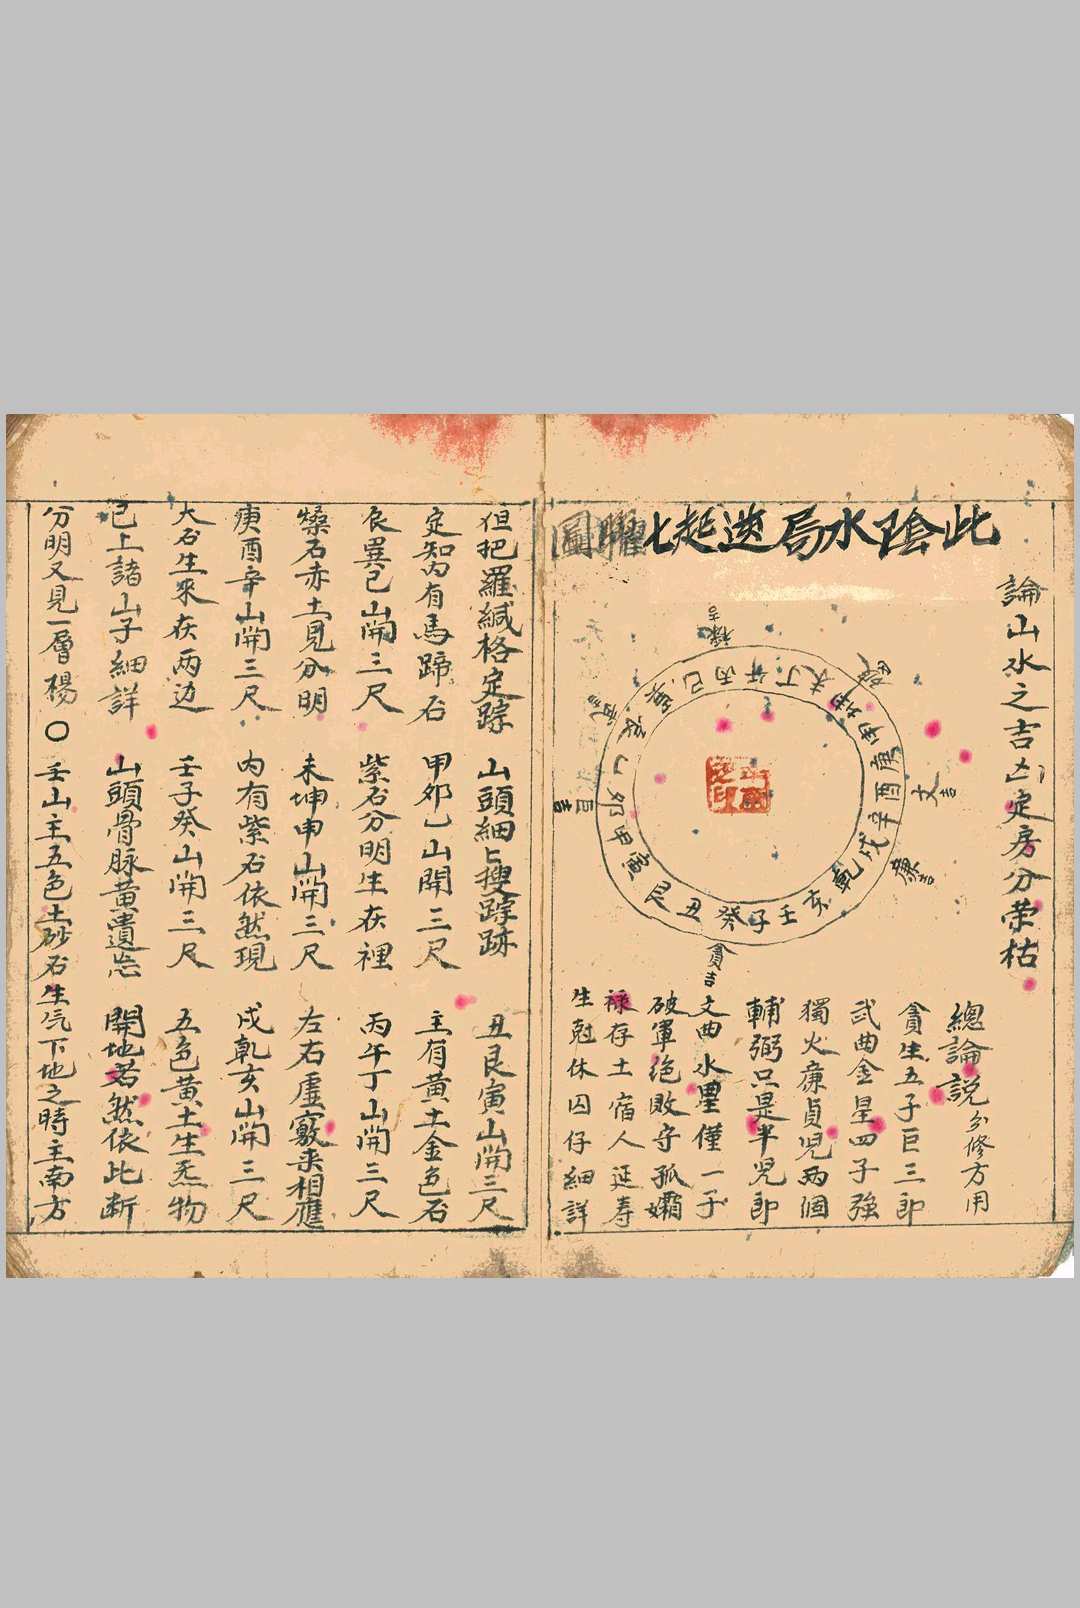 此陰水局逆起北
曜圖
論山水之吉凶定房分荣枯
總論説
分修方用
貪生五子巨三郎
武曲金星四子強
獨火廉貞児兩個
輔弼只是半児郎
文曲水星僅一子
破軍绝敗守孤孀
禄存土宿人延寿
生尅休囚仔細詳
丙午丁未坤申庚酉辛戌乾亥壬子癸丑艮寅甲卯乙辰巽巳
禄吉
破
文吉
廉吉
貪吉
巨吉
武
但把羅緘格定踪 山頭細上搜踪跡 丑艮寅山開三尺
定知内有馬蹄石 甲卯乙山開三尺 主有黄土金色石
辰巽巳山開三尺 紫石分明生在裡 丙午丁山開三尺
石赤土見分明 未坤申山開三尺 左右虚竅来相應
庚酉辛山開三尺 内有紫石依然現 戌乾亥山開三尺
大石生來在两边 壬子癸山開三尺 五色黄土生炁物
已上諸山子細詳 山頭骨脉黄遺忘 開地若然依此断
分明又見一層楊 〇 壬山主五色土砂石生气下地之時主南方